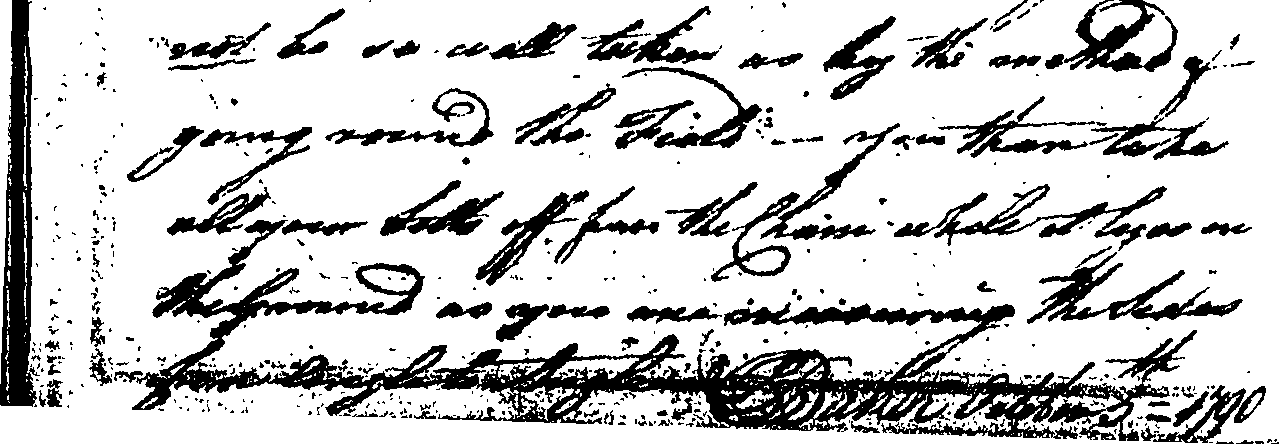 not be so well taken as by the method of
going round the Field — you then take
all your setts off from the Chain while it lyes on
the Ground as you are measuring the Sides
from Angle to Angle October 5th = 1790